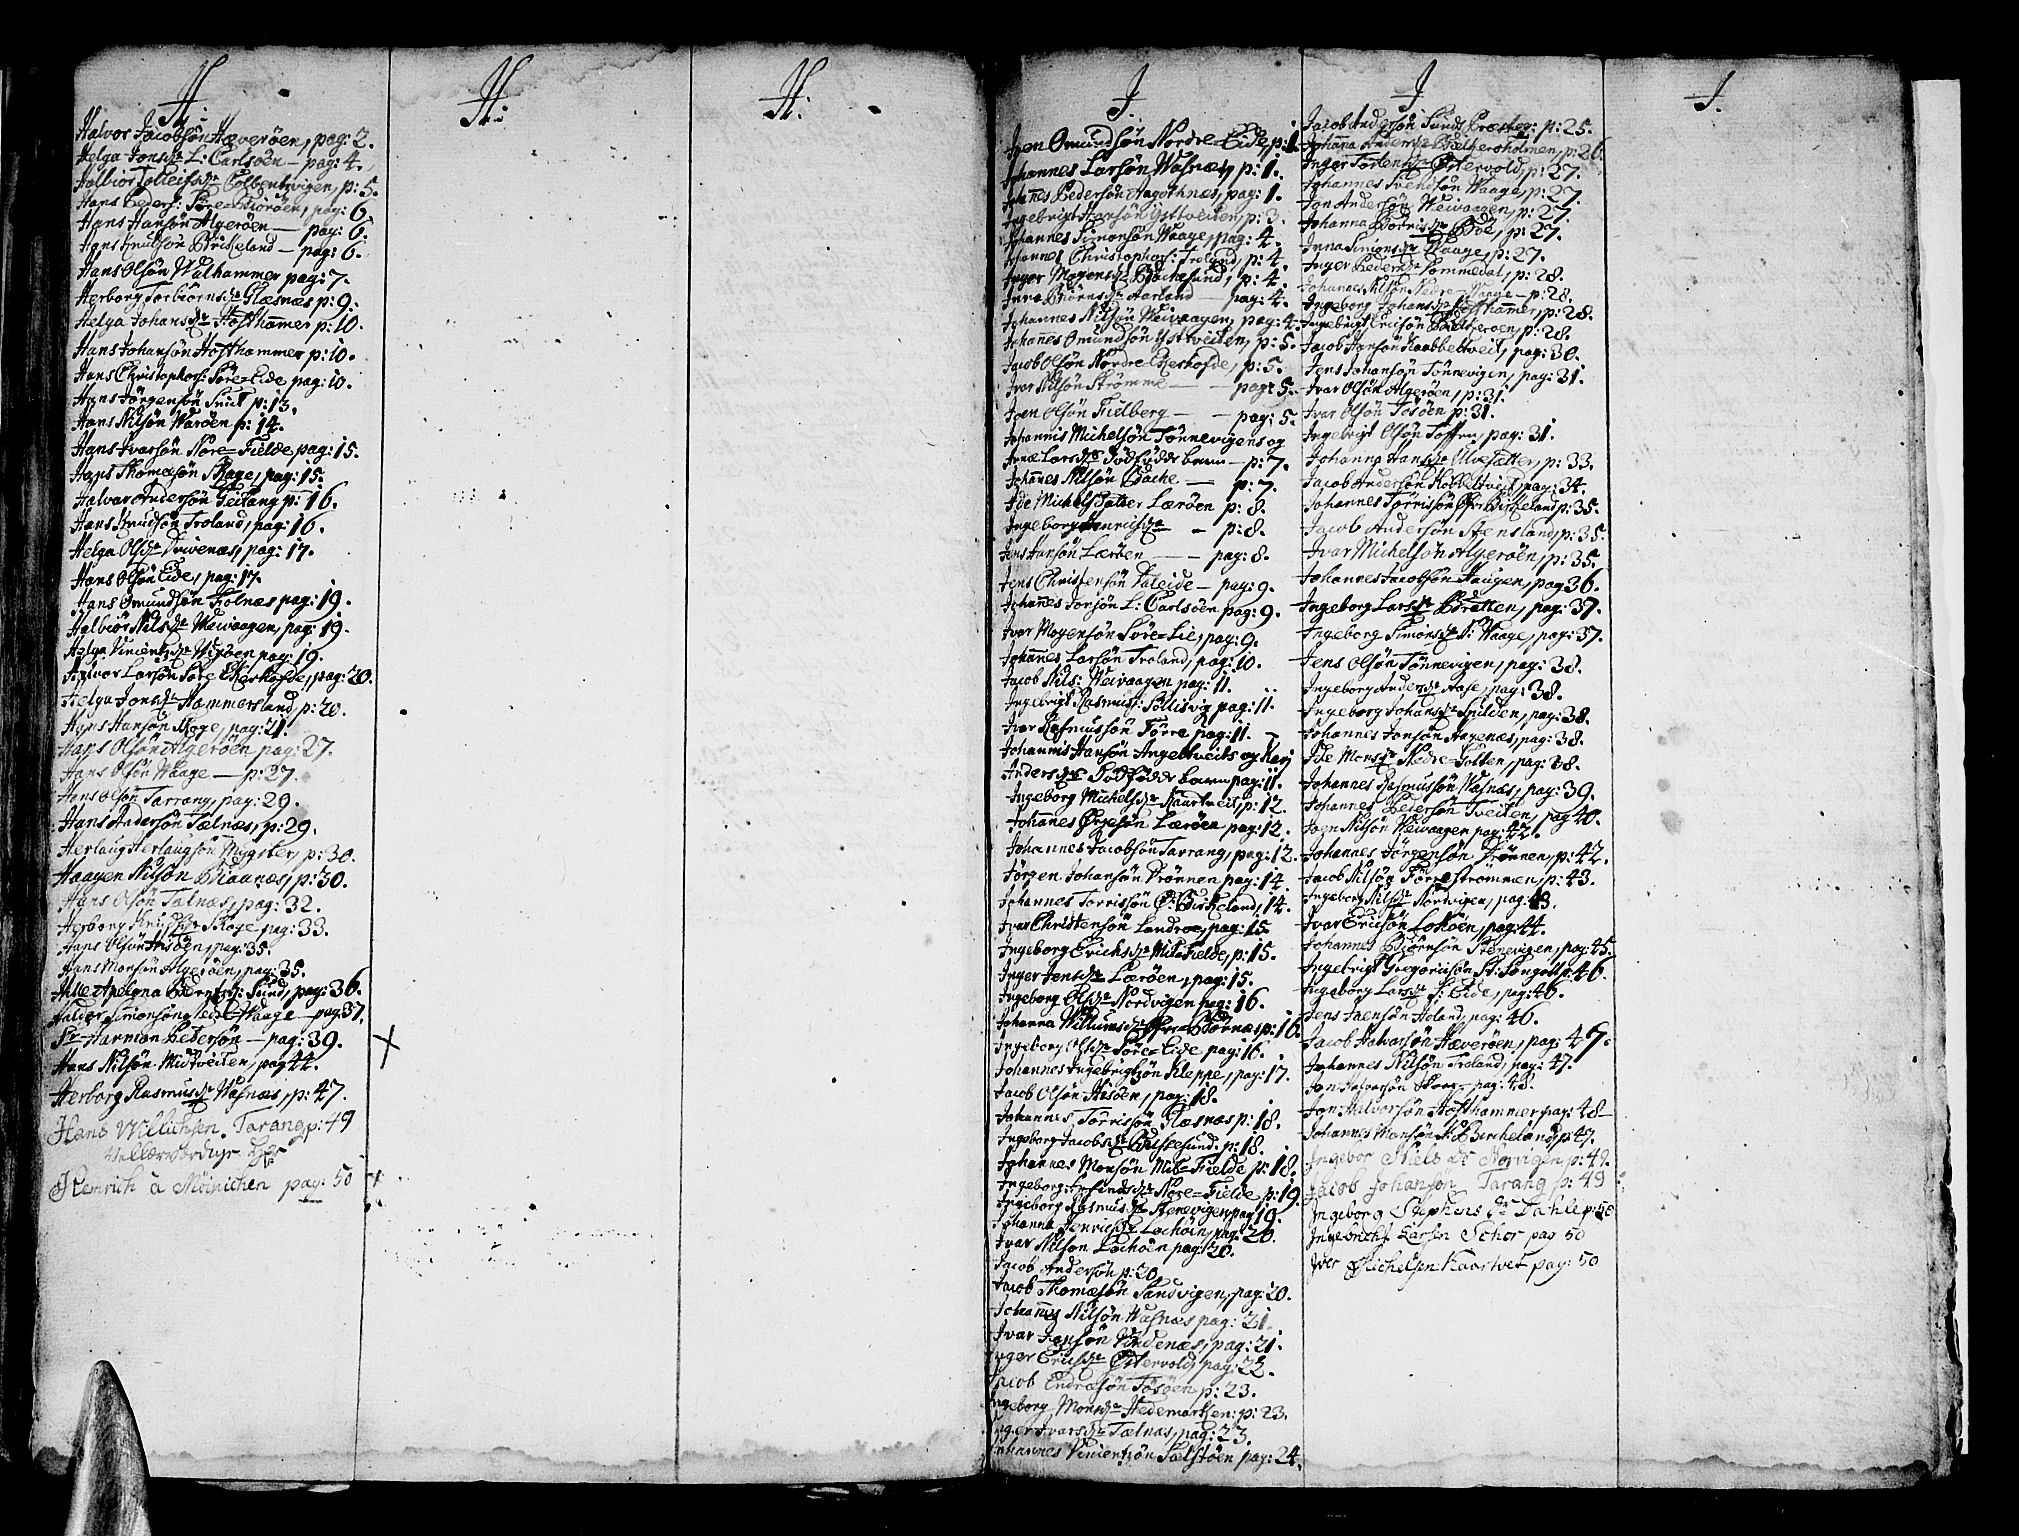 H.
Halvor Jacobsön Hæveröen, pag: 2.
Helga Jonsdr L: Carlsöen – pag: 4.
Halbior Tolleifsdr Colbentsvigen, p: 5.
Hans Peders: Söre=Biöröen, pag: 6.
Hans Hansön Algeröen – pag: 6.
Hans Knudsön Birkeland – pag: 6.
Hans Olsön Walhammer pag: 7.
Herborg Torbiörnsdr Glæsnæs p: 9.
Helga Johansdr Hofthammer p: 10.
Hans Johansön Hofthammer p: 10.
Hans Christophers: Söre=Eide pag: 10.
Hans Jörgensön p: 13.
Hans Nilsön Waröen p: 14.
Hans Ivarsön Nore=Fielde pag: 15.
Hans Thomæsön Skage, pag: 15.
Halvar Andersön Geitang p: 16.
Hans Knudsön Troland, pag: 16.
Helga Olsdr Drivenæs, pag: 17.
Hans Olsön Eide, pag: 17.
Hans Omundsön Tolnæs pag: 19.
Halbior Nilsdr Weivaagen, pag: 19.
Helga Vincentsdr Wiröen pag: 19.
Halvor Larsön Söre Ekerhofde, pag: 20.
Helga Jonsdr Hammersland, p: 20.
Hans Hansön Skoge, pag: 21.
Hans Olsön Algeröen pag: 27.
Hans Olsön Waage – p: 27.
Hans Olsön Tarrang, pag: 29.
Hans Andersön Tælnæs, p: 29.
Herlaug Herlaugsön Mygster, p: 30.
Haagen Nilsön Biaanæs, p: 30.
Hans Olsön Tælnæs, pag: 32.
Herborg Knudsdr Skoge pag: 33.
Hans Olsön pag: 35.
Hans Monsön Algeröen, pag: 35.
Apelona Berntsd: Sund, pag: 36.
Halder Simonsön Waage – pag: 37.
Sr Harman Pedersön – pag: 39.
Hans Nilsön Midtveiten, pag 44.
Herborg Rasmusdr Wasnæs, p: 47.
Hans Willichsen Tarang p: 49
Velærværdige Hr
Henrich a Möinichen pag: 50
H:
H:
I.
Joen Omundsön Nordre=Eide, p: 1.
Johannes Larsön Wasnæs, p: 1.
Johanes Pedersön Angothnæs, pag: 1.
Ingebrigt Hansön Ysttveiten, p: 3.
Johannes Simonsön Waage, pag: 4.
Johannes Christophers: Troland, p: 4.
Inger Mogensdr Backesund, p: 4.
Inna Biörnsdr Aarland – pag: 4.
Johannes Nilsön Weivaagen, pag: 4.
Johanes Omundsön Ysttveiten, p: 5.
Jacob Olsön Nordre Ekerhofde, p: 5.
Ivar Nilsön Strömme – pag: 5.
Joen Olsön Fielberg – pag: 5.
Johannis Michelsön Tönnevigens og
Larsdrs Dödfödde barn – p: 7.
Johanes Nilsön Backe – p: 7.
Ide Michelsdatter Læröen p: 8.
Ingeborg Henrichsdr – p: 8.
Jens Hansön Læröen – pag: 8.
Jens Christensön Taleide – pag: 9.
Johanes Jonsön L: Carlsöen pag: 9.
Ivar Mogensön Söre=Lie, pag: 9.
Johanes Larsön Troland, pag: 10.
Jacob Nils: Weivaagen pag: 11.
Ingebrigt Rasmus: Tollisvig pag: 11.
Ivar Rasmussön Förre pag: 11.
Johannis Hansön Angeltveits og Kari
Andersdrs Dödfödde barn pag: 11.
Ingeborg Michelsdr Kaartveit, p: 12.
Johanes Örgesön Læröen pag: 12.
Johannes Jacobsön Tarrang, pag: 12.
Jörgen Johansön Drönnen pag: 14.
Johannes Torrissön Ö: Birkeland, 14.
Ivar Christensön Landroe, pag: 15.
Ingeborg Erichsdr Mit=Fielde, p: 15.
Inger Jensdr Læröen, pag: 15.
Ingeborg Olsdr Nordvigen pag: 16.
Johanna Willumsdr Öfre=Börnæs p: 16.
Ingeborg Olsdr Söre=Eide pag: 16.
Johannes Ingebrigtsön Kleppe, pag: 17.
Jacob Olsön pag: 18.
Johannes Torrisön Klæsnæs p: 18.
Ingeborg Jacobsdr p: 18.
Johannes Monsön Mit=Fielde p: 18.
Ingeborg Nore=Fielde p: 19.
Ingeborg Rasmusdr Stenevigen pag 19.
Johanna Henrichsdr Lochöen, pag: 20.
Ivar Nilson Lochöen pag: 20.
Jacob Andersön p: 20.
Jacob Thomæsön Sandvigen, pag: 20.
Johannes Nilsön Wasnæs pag: 21.
Ivar Hansön Vindenæs, pag: 21.
Inger Ericksdr Östervold, pag: 22.
Jacob Endresön Tösöen p: 23.
Ingeborg Monsdr Hedemarken: p: 23.
Inger Ivarsdr Tælnæs, pag: 23.
Johannes Vincentzön Tælstöen pag: 24.
I.
Jacob Andersön Sunds Præsteg: p: 25.
Johana Andersdr Bielkersholmen, p: 26.
Inger Torlensdr Östervold, p: 27.
Johannes Svendsön Waage, p: 27.
Jon Andersön Weivaagen, p: 27.
Johanna Bötrisdr Böe, p: 27.
Inna Simonsdr Waage, p: 27.
Inger Pedersdr Pommedal, p: 28.
Johannes Nilsön Nedre=Waage – p: 28.
Ingeborg Johansdr Hofthamer, p: 28.
Ingebrigt Ericsön Bielkeröen, p: 28.
Jacob Hansön Kaabbeltveit, pag: 30.
Jens Johansön Tönnevigen, pag: 31.
Ivar Olsön Algeröen, p: 31.
Ivar Olsön Tösöen p: 31.
Ingebrigt Olsön Toften, pag: 31.
Johanna Hansdr Ulvesætter, p: 33.
Jacob Andersön Kolltveit, pag: 34.
Johannes Torrisön Öfre Birkeland p: 35.
Jacob Andersön Stensland, p: 35.
Ivar Michelsön Algeröen, p: 35.
Johannes Jacobsön Haugen, pag 36.
Ingeborg Larsdr Bratten, pag: 37.
Ingeborg Simonsdr N: Waage, pag: 37.
Jens Olsön Tönnevigen, pag: 38.
Ingeborg Andersdr Aase, pag: 38.
Ingeborg Johansdr Spilden, pag: 38.
Johannes Jonsön Aagenæs, pag: 38.
Ide Monsdr Nedre=Tolten, pag: 38.
Johannes Rasmussön Wasnæs, pag: 39.
Johannes Pedersön Tveiten, pag 40.
Joen Nilsön Weivaagen pag: 42.
Johannes Jörgensön Drönnen, p: 42.
Jacob Nilsön Förrestrømmen, p: 43.
Ingeborg Nilsdr Nordvigen, pag: 43.
Ivar Ericsön Loköen, pag: 44.
Johannes Biörnsön Stenevigen, pag: 45.
Ingebrigt Gregoriisön St: Sangolt p: 46.
Ingeborg Larsdr S: Eide, pag: 46.
Jens Jaensön Holand, pag: 46.
Jacob Halvorsön Hæveröen, pag: 47.
Johannes Nilsön Troland, pag: 47.
Jon Halvorsön Skorge pag: 48.
Jon Halvorsön Hofthammer pag: 48
Johannes Monsön N: Birkeland, p: 47.
Ingebor Niels dr Norvigen p: 49.
Jacob Johansön Tarang p: 49
Ingeborg Stephens Dr Dahle p: 50
Ingebricht Larsen pag 50
Iver Michelsen Kaartvet pag: 50
I.